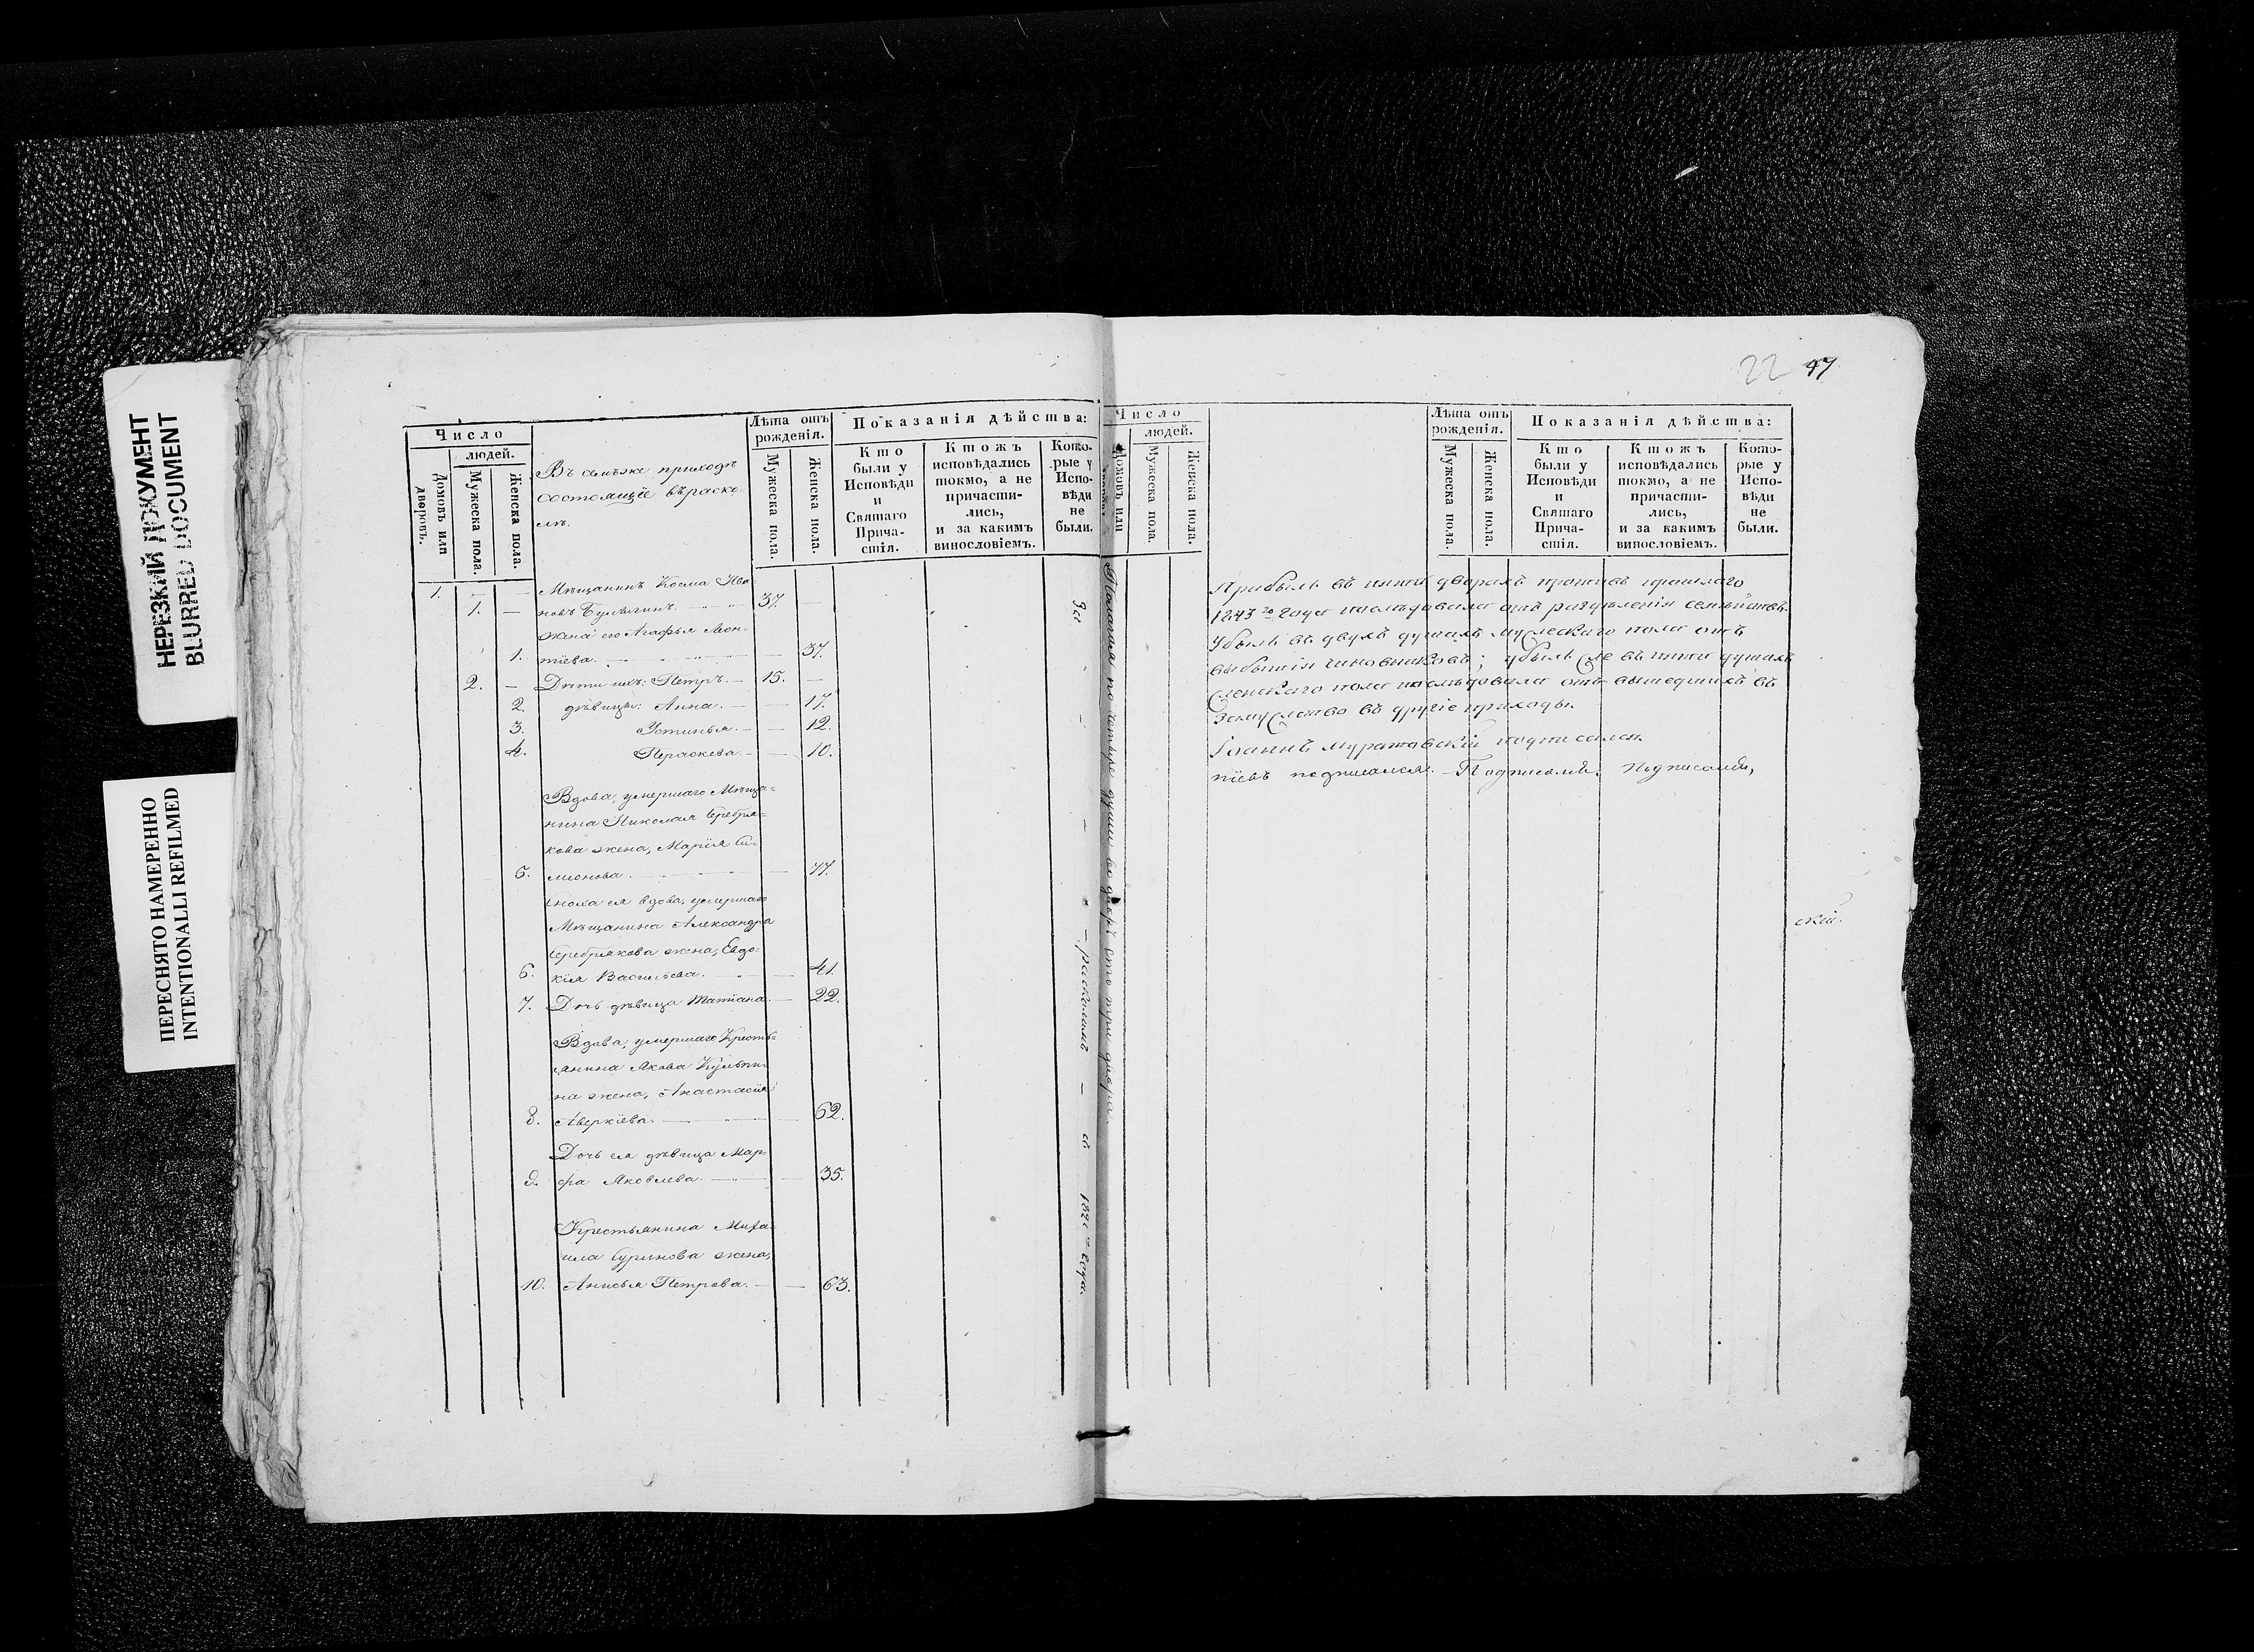 НЕРЕЗКИЙ ДОКУМЕНТ
BLURRED DOCUMENT
ПЕРЕСНЯТО НАМЕРЕННО
INTENTIONALLI REFILMED
Число
людей.
Домовъ или дворовъ.
Мужеска пола.
Женска пола.
Въ семъже приходѣ
состоящіе въ раско-
лѣ.
Лѣта отъ
рожденія.
Мужеска пола.
Женска пола.
Показанія дѣйства:
Кто
были у
Исповѣди
и
Святаго
Прича-
стія.
Ктожъ
исповѣдались
токмо, а не
причасти-
лись,
и за какимъ
винословіемъ.
Кото-
рые у
Испо-
вѣди
не
были.
1. — — Мѣщанинъ Косма Ива-
1. — новъ 37. —
жена его Агафья Леон-
1. тіева. — 37.
2. — Дѣти ихъ: Петръ. — 15. —
2. дѣвицы: Анна. — — 17.
3. Устинья. — — 12.
4. Параскева. — — 10.
Вдова, умершаго Мѣща-
нина Николая Серебря-
кова жена, Марія Си-
5. мионова. — 77.
Сноха ея вдова, умершаго
Мѣщанина Александра
Серебрякова жена, Евдо-
6. кія Васильева. — 41.
7. Дочь дѣвица Татіана. — 22.
Вдова, умершаго Кресть-
янина Якова
на жена, Анастасія
8. Аверкіева. — 62.
Дочь ея дѣвица Мар-
9. фа Яковлева. — 35.
Крестьянина Миха-
ила жена,
10. Анисья Петрова. — — 63.
За
—
—
— расколомъ
—
съ
года.
22 47
Число
людей.
Домовъ или
Мужеска пола.
Женска пола.
Лѣта отъ
рожденія.
Мужеска пола.
Женска пола.
Показанія дѣйства:
Кто
были у
Исповѣди
и
Святаго
Прича-
стія.
Ктожъ
исповѣдались
токмо, а не
причасти-
лись,
и за какимъ
винословіемъ.
Кото-
рые у
Испо-
вѣди
не
были.
Полагая по четыре души во дворѣ сто три двора.
Прибыль въ пяти дворахъ противъ прошлаго
1843го года послѣдовала отъ раздѣленія семействъ.
Убыль въ двухъ душахъ мужескаго пола отъ
выбытія чиновниковъ; убыль же въ пяти душахъ
женскаго пола послѣдовала отъ вышедшихъ въ
замужство въ другіе приходы.
Іоаннъ Муратовскій подписалъ.
піевъ подписался. — Подписалъ. Подписалъ,
скій.